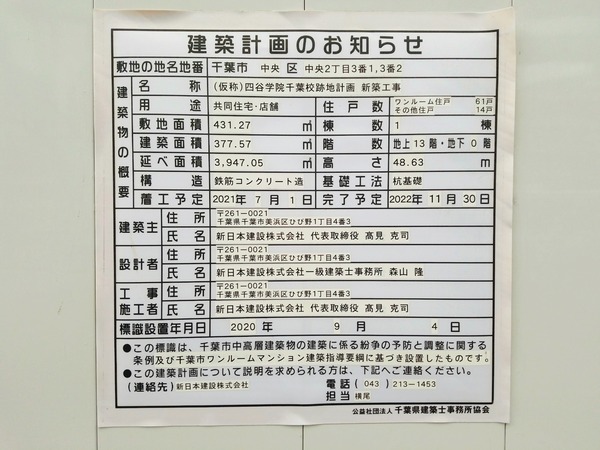 建築計画のお知らせ
敷地の地名地番 千葉市 中央 区 中央2丁目3番1,3番2
建築物の概要
名称 (仮称)四谷学院千葉校跡地計画 新築工事
用途 共同住宅・店舗 住戸数 ワンルーム住戸 61戸
その他住戸 14戸
敷地面積 431.27 ㎡ 棟数 1 棟
建築面積 377.57 ㎡ 階数 地上 13 階・地下 0 階
延べ面積 3,947.05 ㎡ 高さ 48.63 m
構造 鉄筋コンクリート造 基礎工法 杭基礎
着工予定 2021年 7 月 1 日 完了予定 2022年 11 月 30 日
建築主 住所 〒261-0021
千葉県千葉市美浜区ひび野1丁目4番3
氏名 新日本建設株式会社 代表取締役 髙見 克司
設計者 住所 〒261-0021
千葉県千葉市美浜区ひび野1丁目4番3
氏名 新日本建設株式会社一級建築士事務所 森山 隆
工事施工者 住所 〒261-0021
千葉県千葉市美浜区ひび野1丁目4番3
氏名 新日本建設株式会社 代表取締役 髙見 克司
標識設置年月日 2020 年 9 月 4 日
●この標識は、千葉市中高層建築物の建築に係る紛争の予防と調整に関する
条例及び千葉市ワンルームマンション建築指導要綱に基づき設置したものです。
●この建築計画について説明を求められる方は、下記へご連絡ください。
(連絡先) 新日本建設株式会社 電話 (043) 213-1453
担当 横尾
公益社団法人 千葉県建築士事務所協会